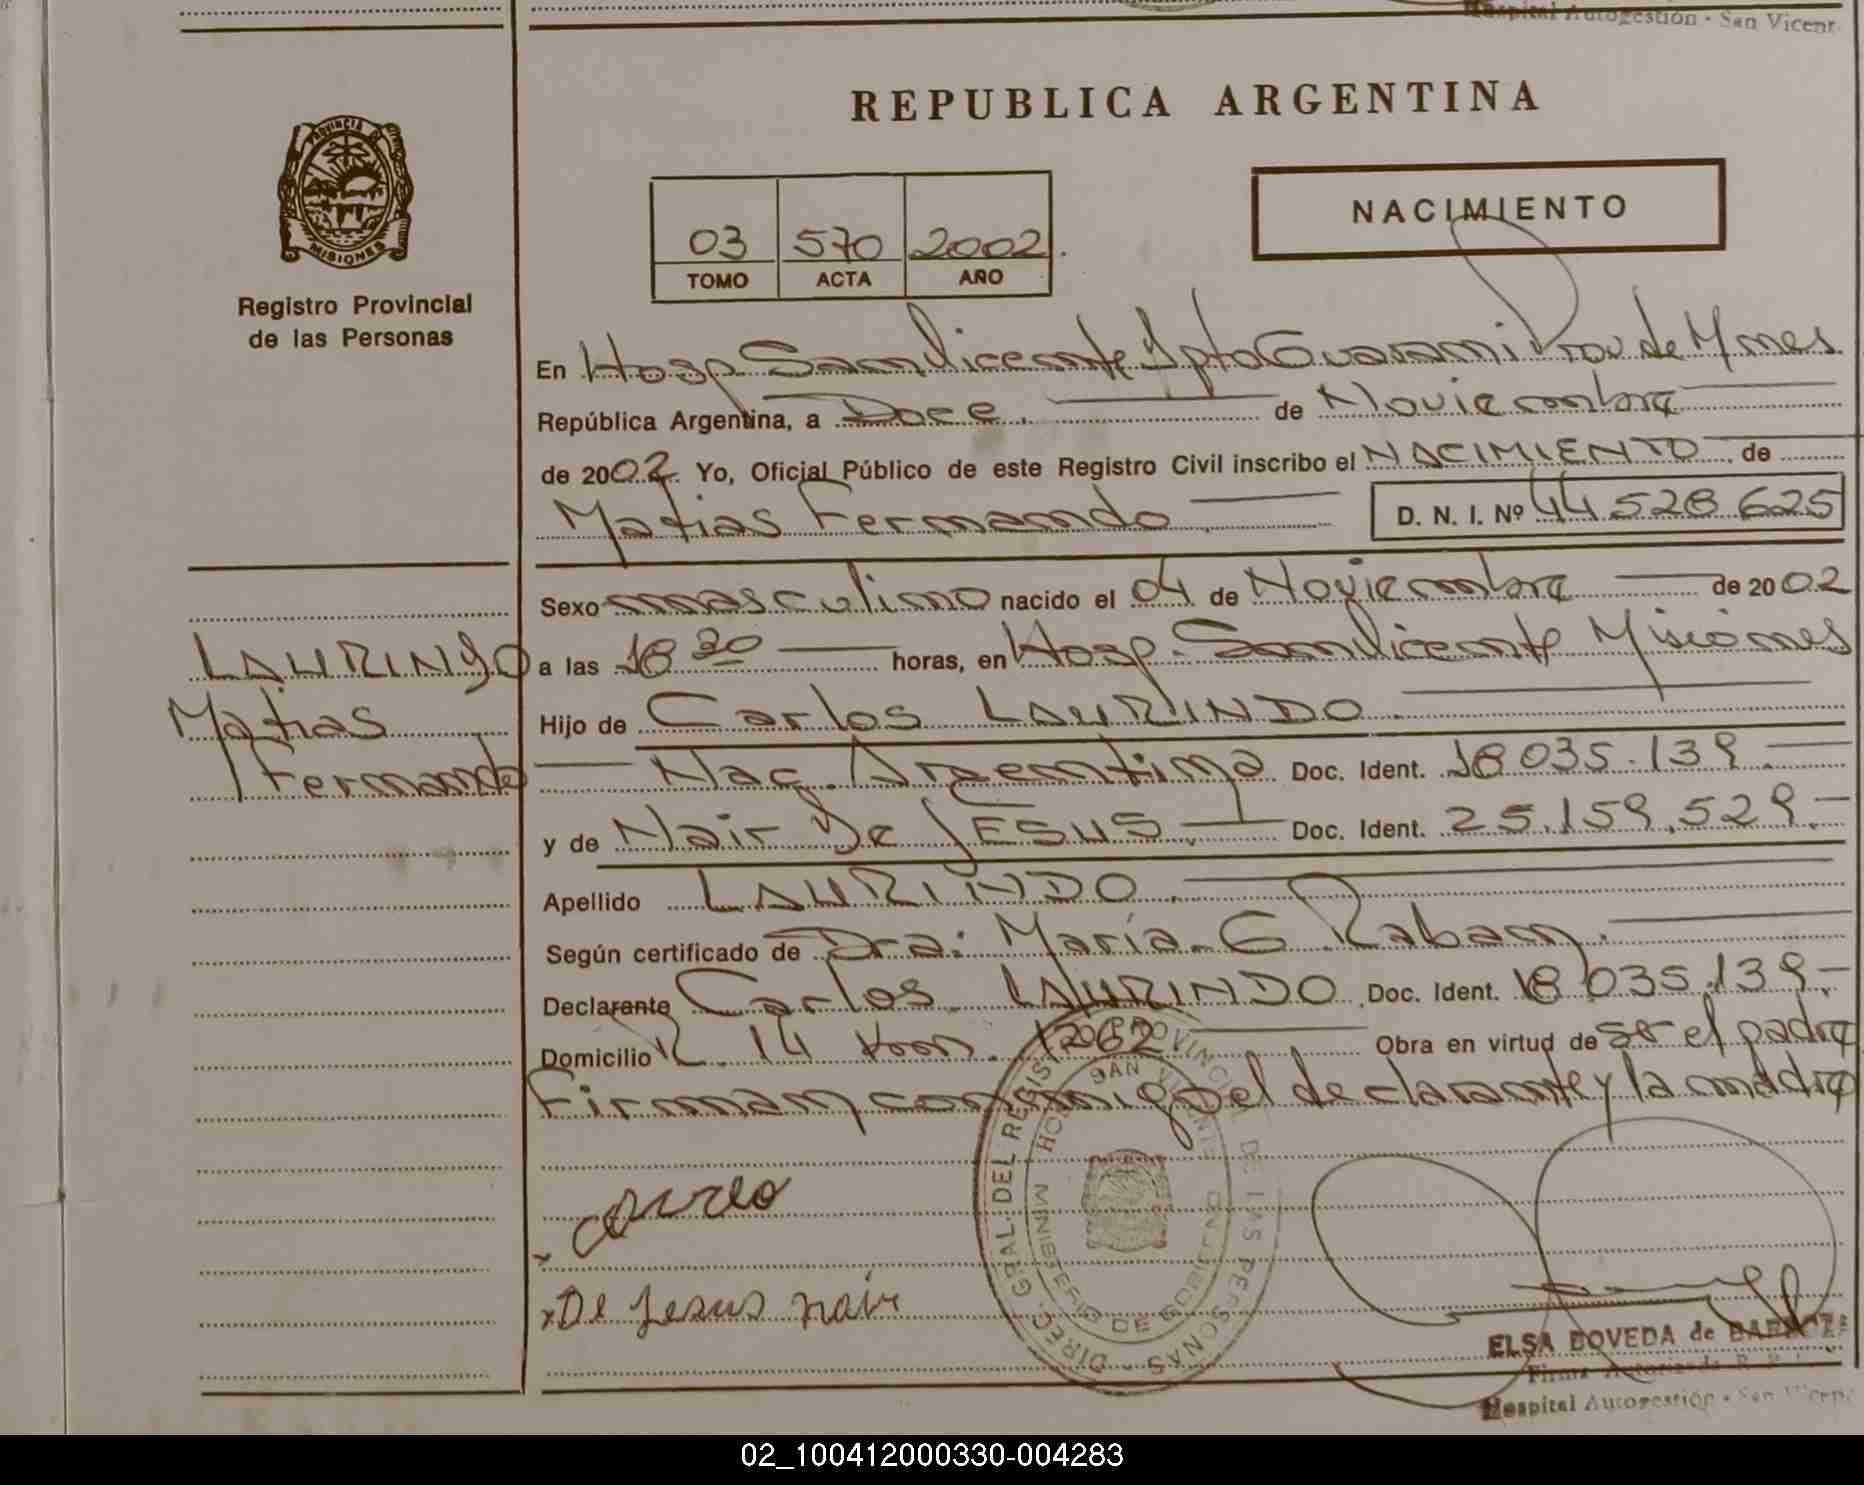 Hospital Autogestión - San Vicent
REPUBLICA ARGENTINA
PROVINCIA DE
MISIONES
Registro Provincial
de las Personas
03 570 2002.
TOMO ACTA AÑO
NACIMIENTO
En Hosp San Vicente Dpto Guarani Prov de Mnes
República Argentina, a Doce. de Noviembre
de 2002 Yo, Oficial Público de este Registro Civil inscribo el NACIMIENTO de
Matias Fernando D. N. I. Nº 44 528 625
Sexo masculino nacido el 04 de Noviembre de 2002
LAURINDO
Matias
Fernando
a las 18 30 horas, en Hosp. San Vicente Misiones
Hijo de Carlos LAURINDO.
Nac. Argentina Doc. Ident. 18 035.139.
y de Nair De JESUS Doc. Ident. 25.159.529.-
Apellido LAURINDO.
Según certificado de Dra: María G Raban.
Declarante Carlos LAURINDO Doc. Ident. 18 035.139.-
Domicilio R. 14 Km. 1262 Obra en virtud de ser el padre
Firman conmigo el declarante y la madre
x De Jesus nair
DIREC. GRAL. DEL REGISTRO PROVINCIAL DE LAS PERSONAS
HOSP. SAN VICENTE
MINISTERIO DE GOBIERNO
ELSA DOVEDA de
Firma Autorizada
Hospital Autogestión - San Vicent
02_100412000330-004283